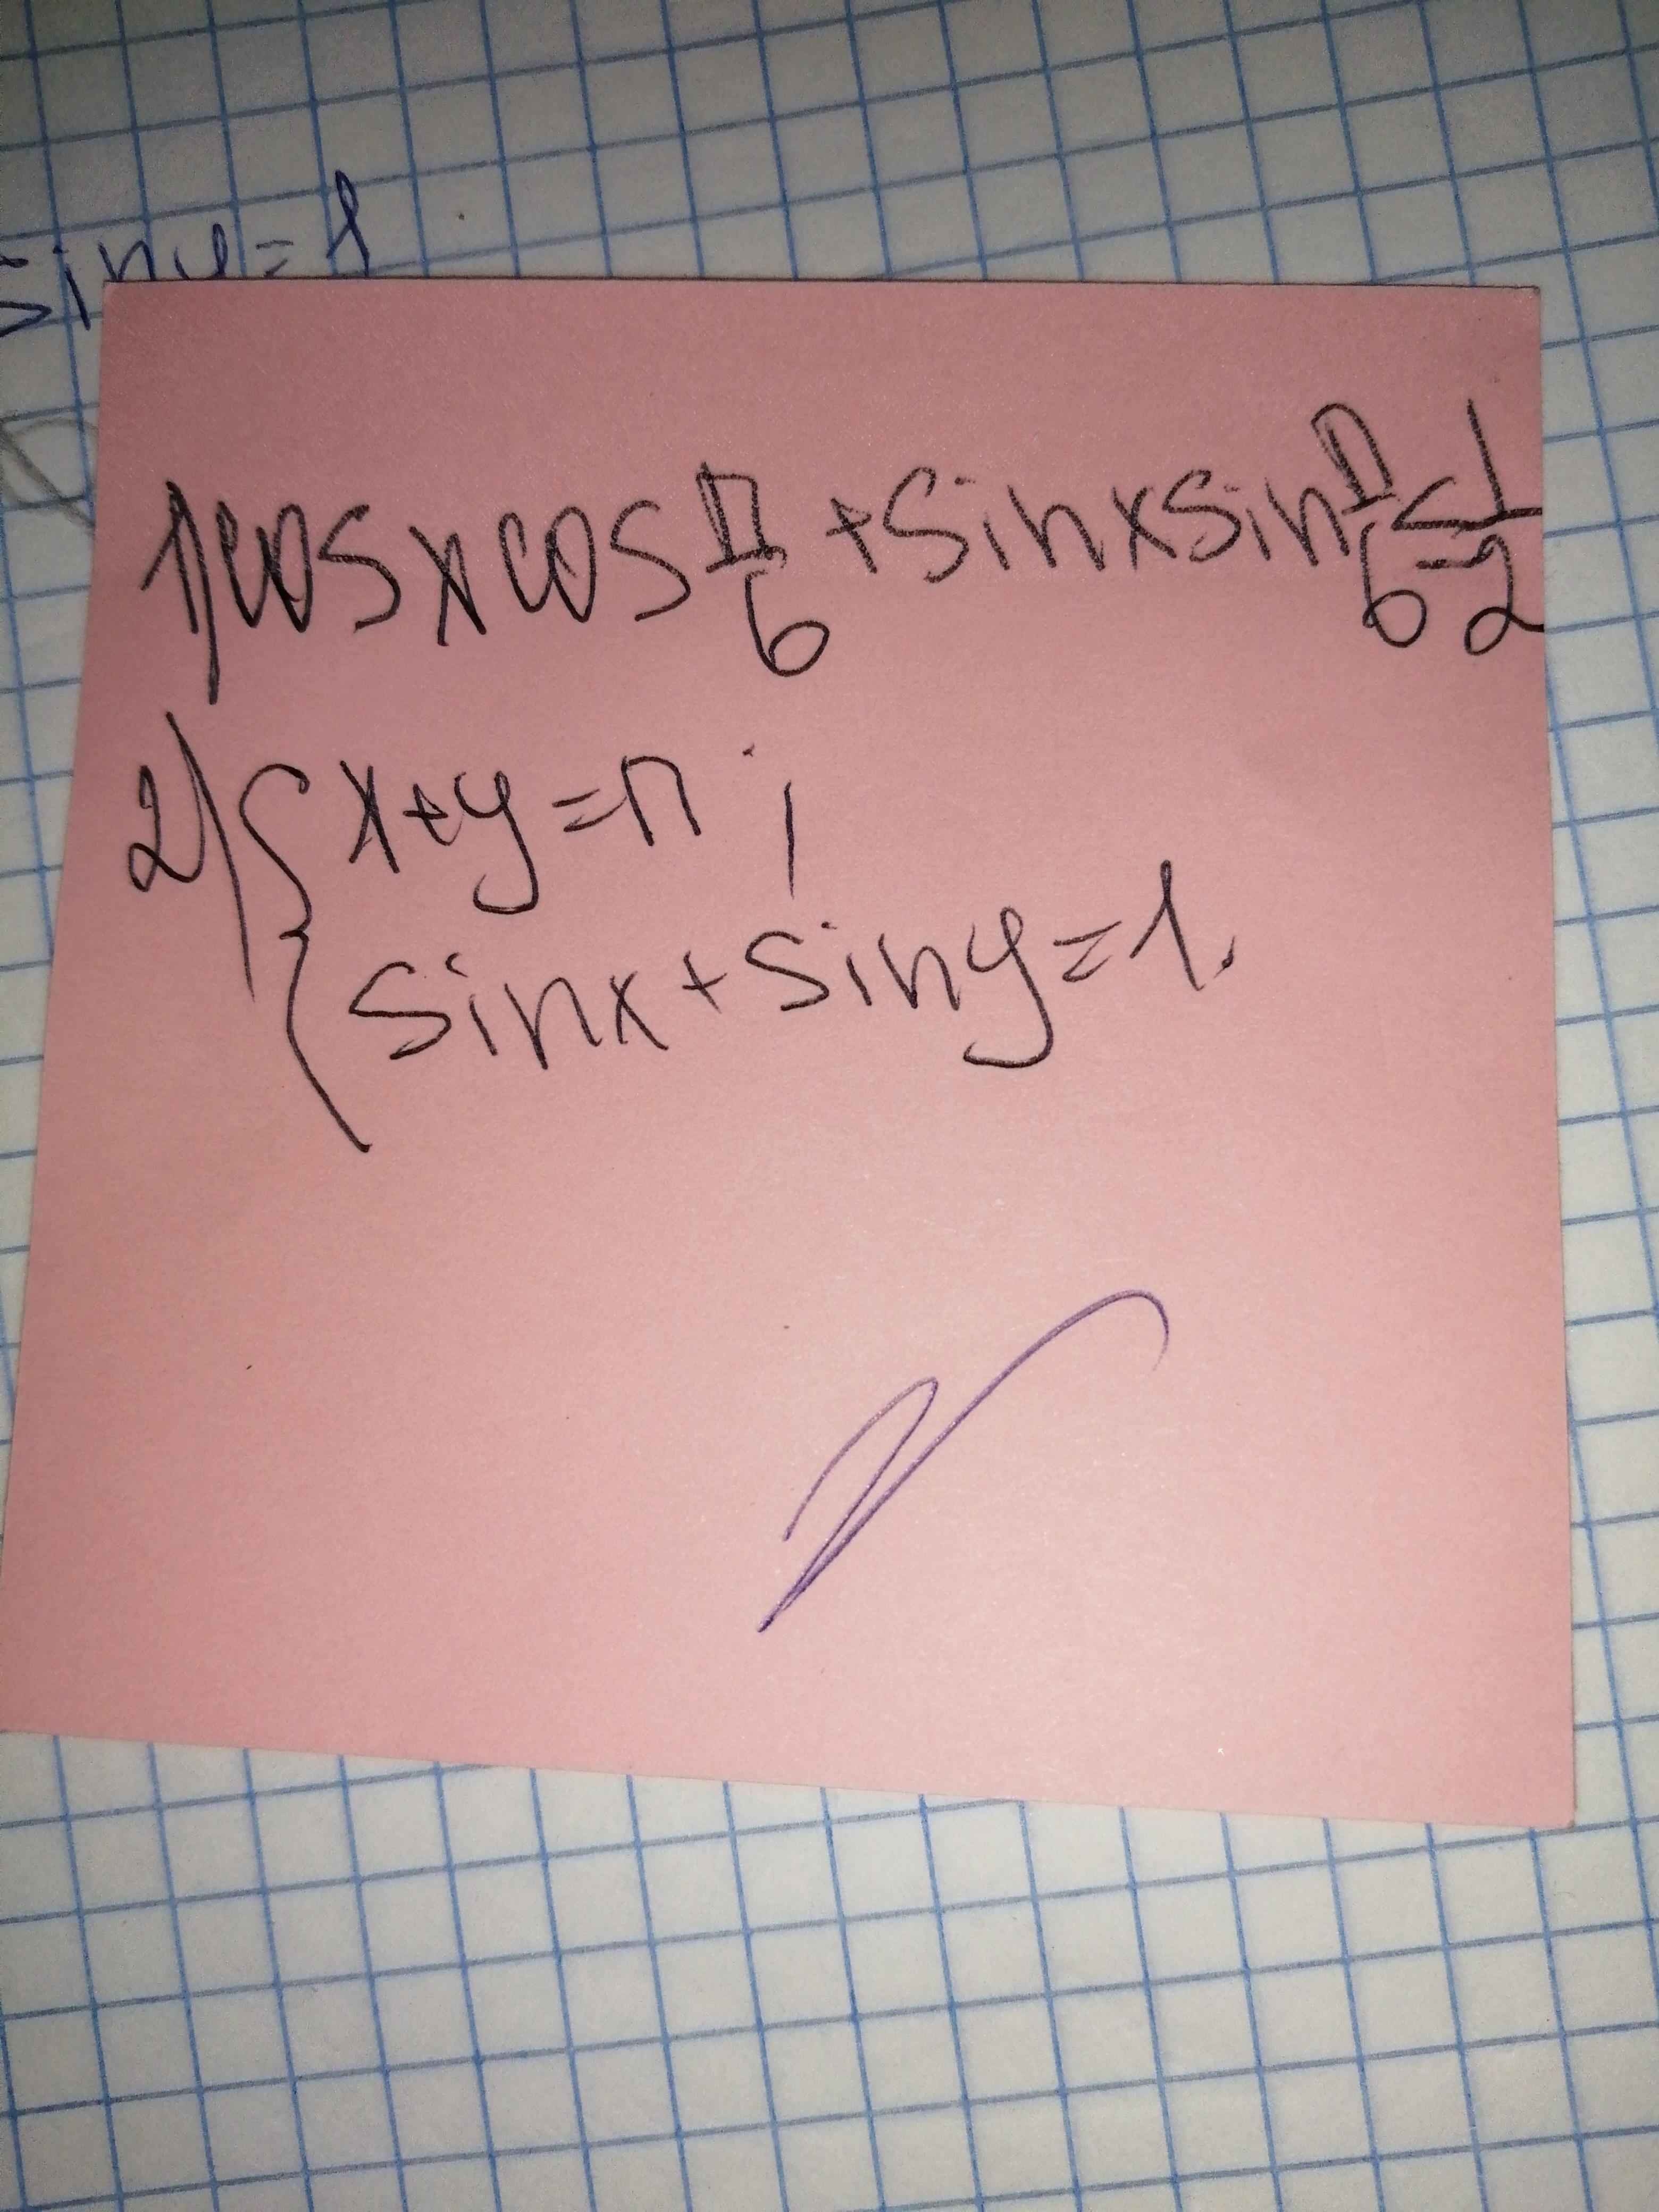 siny=1
1) cosx cos π/6 + sinx sin π/6 ≤ 1/2
2) { x+y=π ;
sinx+siny=1.